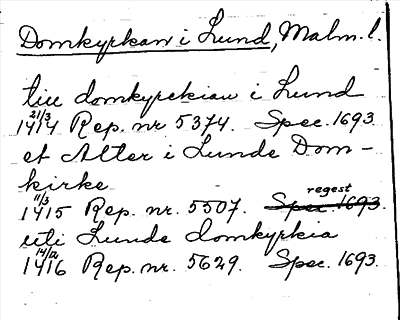 Domkyrkan i Lund, Malm. l.
till domkyrckian i Lund
1414 21/3 Rep. nr 5374. Spec. 1693.
et Alter i Lunde Dom-
kirke
regest
1415 11/3 Rep. nr. 5507. Spec. 1693.
uti Lunde domkyrkia
1416 14/12 Rep. nr. 5629. Spec. 1693.